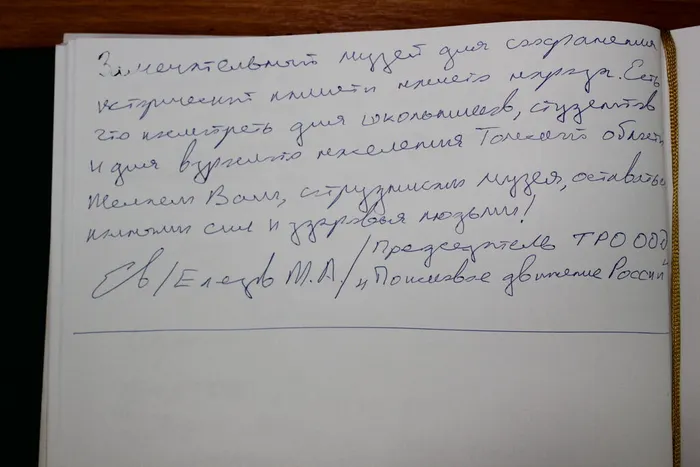 Замечательный музей для сохранения
исторической памяти нашего народа. Есть
что посмотреть для школьников, студентов
и для взрослого населения Томской области
Желаем Вам, сотрудникам музея, оставаться
полными сил и здоровья людьми!
/Елезов М.А/Председатель ТРО ООД
"Поисковое движение России"